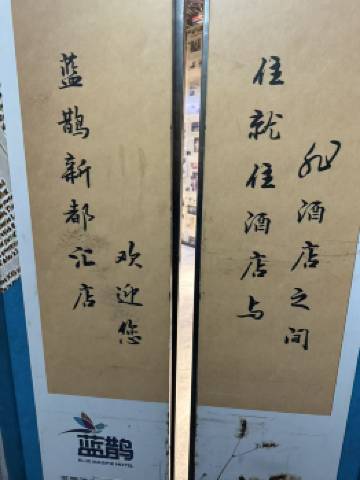 住就住酒店与
非酒店之间
蓝鹊新都汇店
欢迎您
蓝鹊
BLUE MAGPIE HOTEL